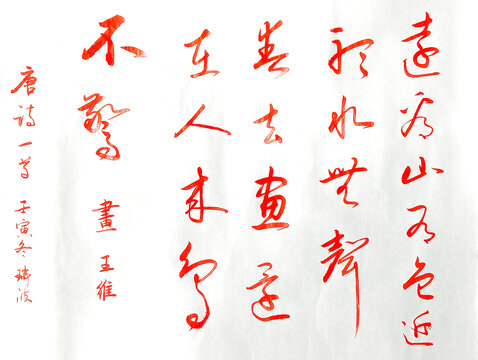 遠看山有色近
聽水無聲
春去花還
在人來鳥
不驚 畫 王維
唐詩一首 壬寅冬 瑞波